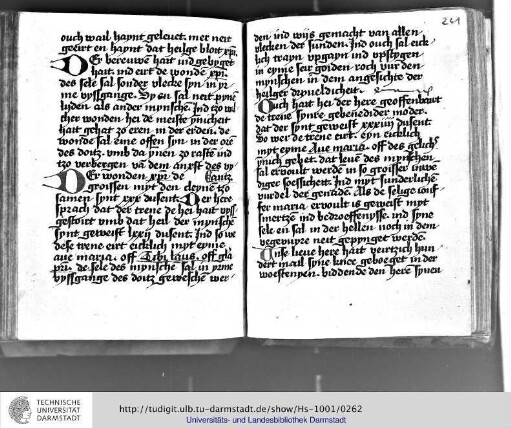 ouch wail haynt geleuct. mer neit
geeirt en haynt dat heilge bloit xpi.
bereuwen hait ind gebyget
hait. ind eirt de wonde xpi.
des sele sal sonder vlecke syn in yr
me vyssgange. Sy en sal neit pyne
lyden als ander mynsche. Ind tzo
wilcher wonden hei de meiste ynicheit
hait gehat zo eren in der erden. de
wonde sal eine offen syn in der
des doitz. vmb da ynen zo raste ind
tzo verbergen vā dem anxst des
wonden xpi. de
groissen myt den cleyne tzo
samen synt xxx dusent. Der here
sprach dat der trene de hei hait
gestoirt vmb dat heil der mynsche
synt geweist lxxij dusent. Ind so we
dese trene eirt eicklich myt eyme
aue maria. off
de sele des mynsche sal in yrme
vyssgange des doitz geweschē wer-
241
den. ind wijs gemacht van allen
vlecken der sunden. Ind ouch sal eick
lich trayn vpgayn ind vpstygen
in eyme seir golden roch vur den
mynschen in dem angesichte der
heilger dryueldicheit.
Ouch hait hei der here geoffenbairt
de trene synre gebenedider moder.
dat der synt geweist xxxiiij dusent.
So wer de trene eirt. eyn eicklich
myt eyme Aue maria. off des gelich
ynich gebet. dat leuē des mynschen
sal ervoult werde in so groisser
diger soessicheit. Ind myt sunderliche
vurdel der genade. Als de selige
fer maria ervoult is geweist myt
smertzē ind bedroeffenysse. ind syne
sele en sal in der hellen noch in dem
vegevuyre neit gepyniget werden.
Onse lieue here hait veirtzich hun
dert mail syne knee geboeget in der
woestenyen. biddende den herē synen
TECHNISCHE
UNIVERSITÄT
DARMSTADT
http://tudigit.ulb.tu-darmstadt.de/show/Hs-1001/0262
Universitäts- und Landesbibliothek Darmstadt